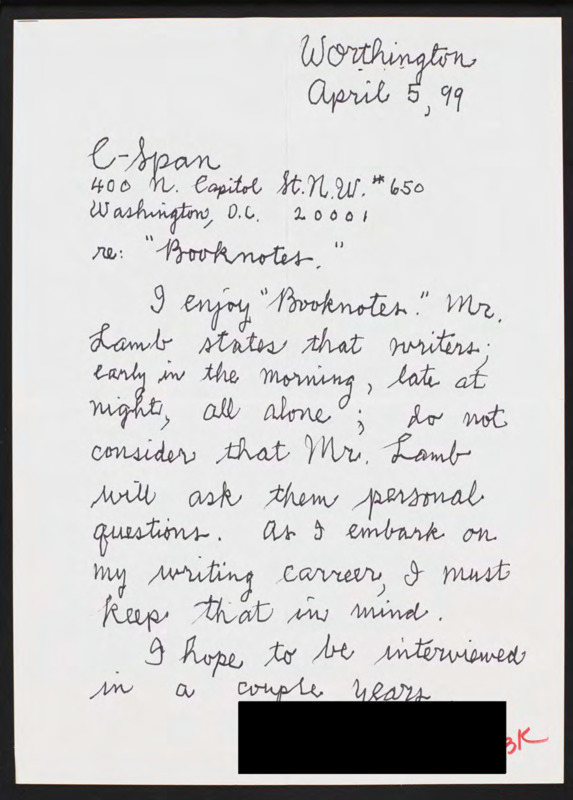 Worthington
April 5, 99
C-Span
400 N. Capitol St. N.W. #650
Washington, D.C. 20001
re: "Booknotes."
I enjoy "Booknotes." Mr.
Lamb states that writers;
early in the morning, late at
night, all alone; do not
consider that Mr. Lamb
will ask them personal
questions. As I embark on
my writing carreer, I must
keep that in mind.
I hope to be interviewed
in a couple years.
BK